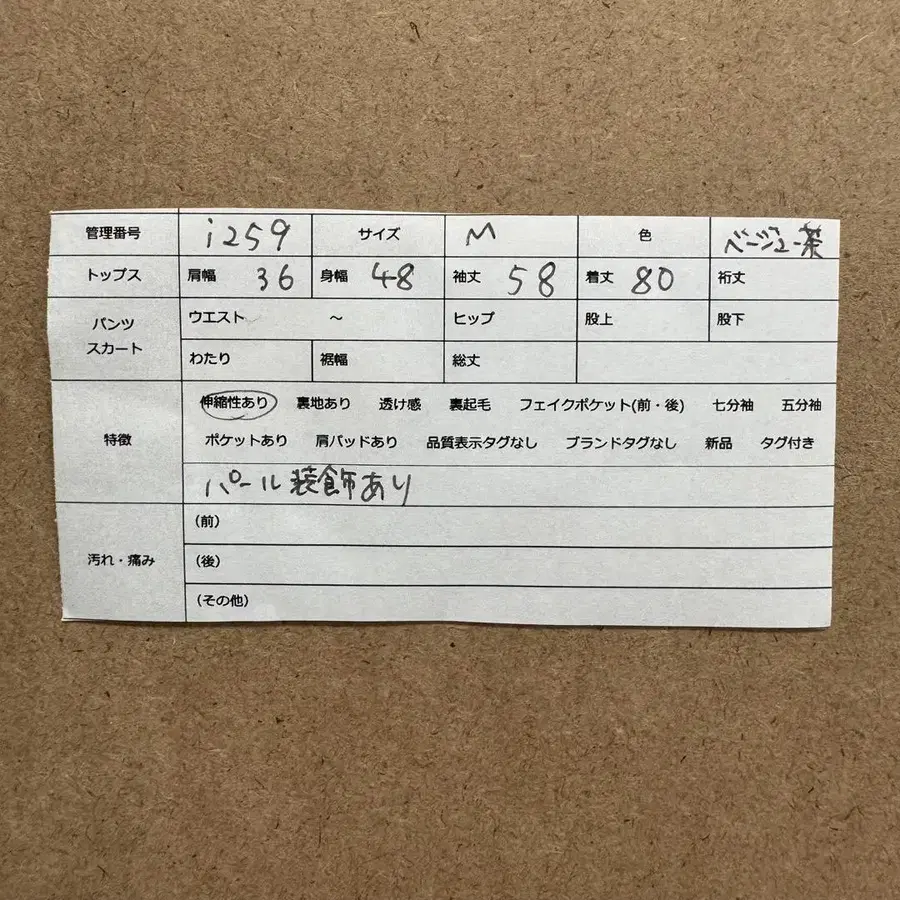 管理番号 i259 サイズ M 色 ベージュ茶
トップス 肩幅 36 身幅 48 袖丈 58 着丈 80 裄丈
パンツ スカート ウエスト ～ ヒップ 股上 股下
わたり 裾幅 総丈
特徴 伸縮性あり 裏地あり 透け感 裏起毛 フェイクポケット(前・後) 七分袖 五分袖
ポケットあり 肩パッドあり 品質表示タグなし ブランドタグなし 新品 タグ付き
パール装飾あり
汚れ・痛み (前)
(後)
(その他)